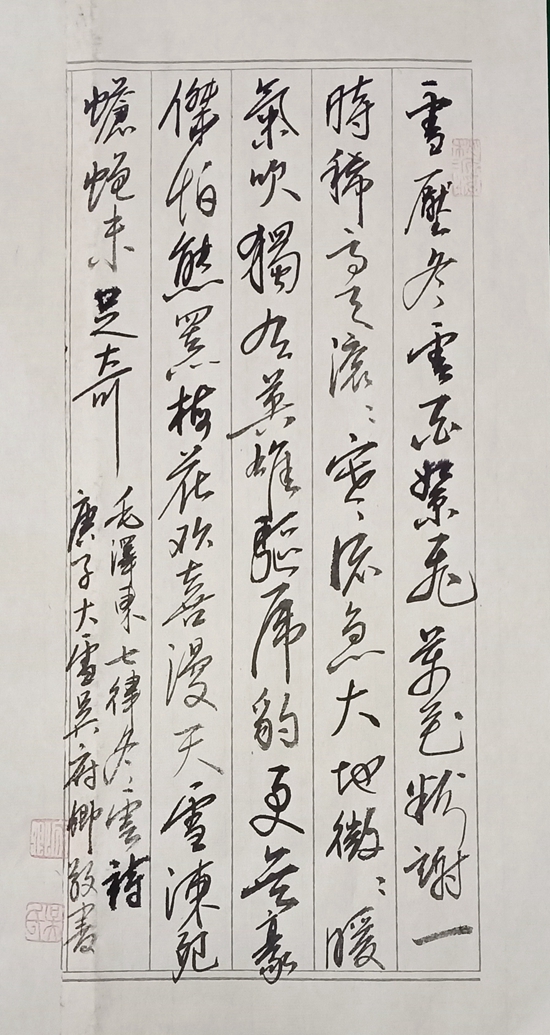 雪壓冬雲白絮飛萬花粉謝一
時稀高天滾〻寒流急大地微〻暖
氣吹獨有英雄驅虎豹更無豪
傑怕熊羆梅花欢喜漫天雪凍死
螥蝇未足奇
毛澤東七律冬雲詩
庚子大雪吳府卿敬書